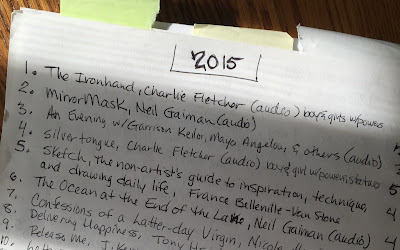 2015
1. The Ironhand, Charlie Fletcher (audio) boy & girls w/powers
2. MirrorMask, Neil Gaiman (audio)
3. An Evening w/Garrison Keilor, Maya Angelou, & others (audio)
4. Silvertongue, Charlie Fletcher (audio) boy & girl w/powers
5. Sketch, the non-artist's guide to inspiration, technique,
and drawing daily life, France Bellenille-Van Stone
6. The Ocean at the End of the Lane, Neil Gaiman (audio) 4
7. Confessions of a Latter-day Virgin, Nicole
8. Delivering Happiness, Tony
9. Release me, J.
10.